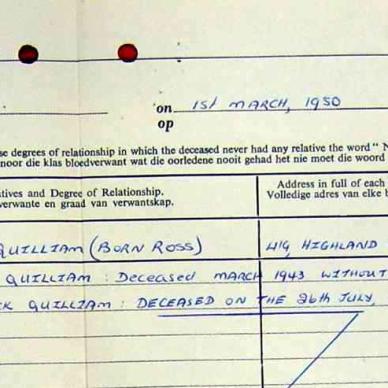 on 1st MARCH, 1950
op
se degrees of relationship in which the deceased never had any relative the word " N
noor die klas bloedverwant wat die oorledene nooit gehad het nie moet die woord
tives and Degree of Relationship. Address in full of each
verwante en graad van verwantskap. Volledige adres van elke b
QUILLIAM (BORN ROSS) 419, HIGHLAND
QUILLIAM : Deceased MARCH 1943 WITHOUT
CK QUILLIAM : DECEASED ON THE 26th JULY,